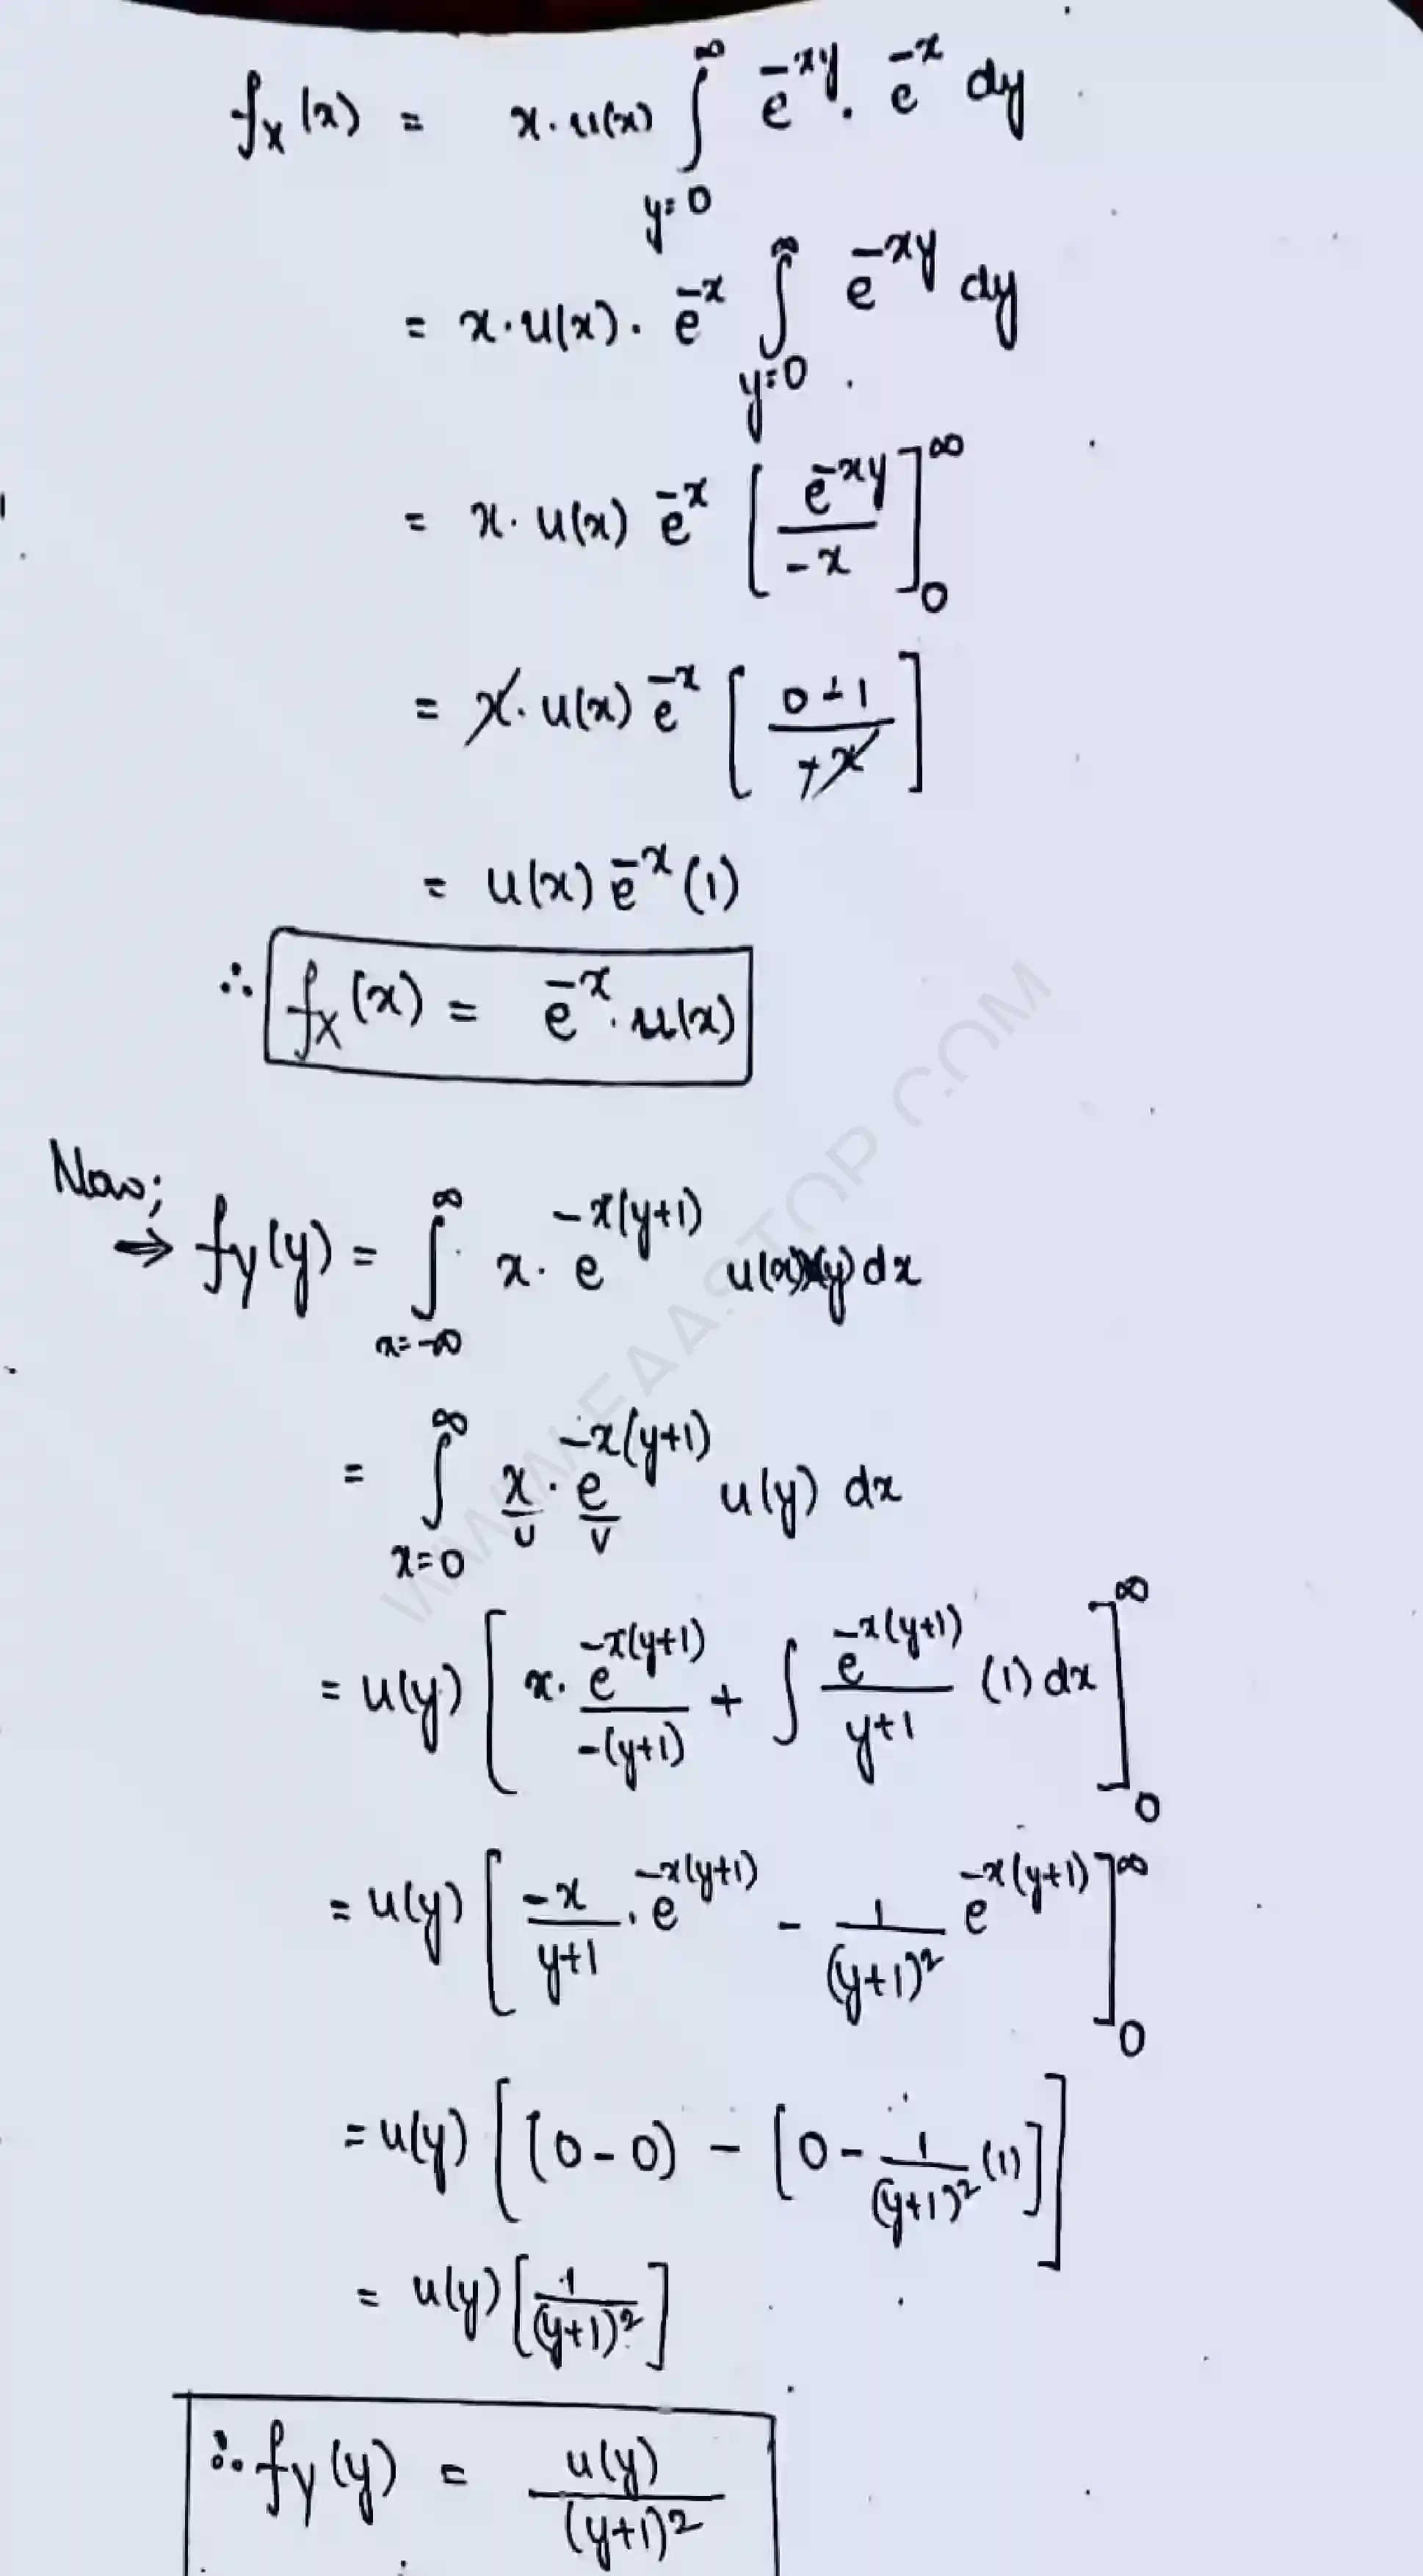 fx(x) = x·u(x) ∫_{y=0}^{∞} e^{-xy}. e^{-x} dy
= x·u(x)· e^{-x} ∫_{y=0}^{∞} e^{-xy} dy
= x· u(x) e^{-x} [e^{-xy}/-x]_0^∞
= x· u(x) e^{-x} [0+1/+x]
= u(x) e^{-x} (1)
∴ fx(x) = e^{-x}. u(x)
Now;
⇒ fy(y) = ∫_{x=-∞}^{∞} x· e^{-x(y+1)} u(x)u(y) dx
= ∫_{x=0}^{∞} x · e^{-x(y+1)} u(y) dx
U V
= u(y) [x· e^{-x(y+1)}/-(y+1) + ∫ e^{-x(y+1)}/y+1 (1) dx]_0^∞
= u(y) [-x/y+1 . e^{-x(y+1)} - 1/(y+1)² e^{-x(y+1)}]_0^∞
= u(y) [(0-0) - [0 - 1/(y+1)² (1)]]
= u(y) [1/(y+1)²]
∴ fy(y) = u(y)/(y+1)²